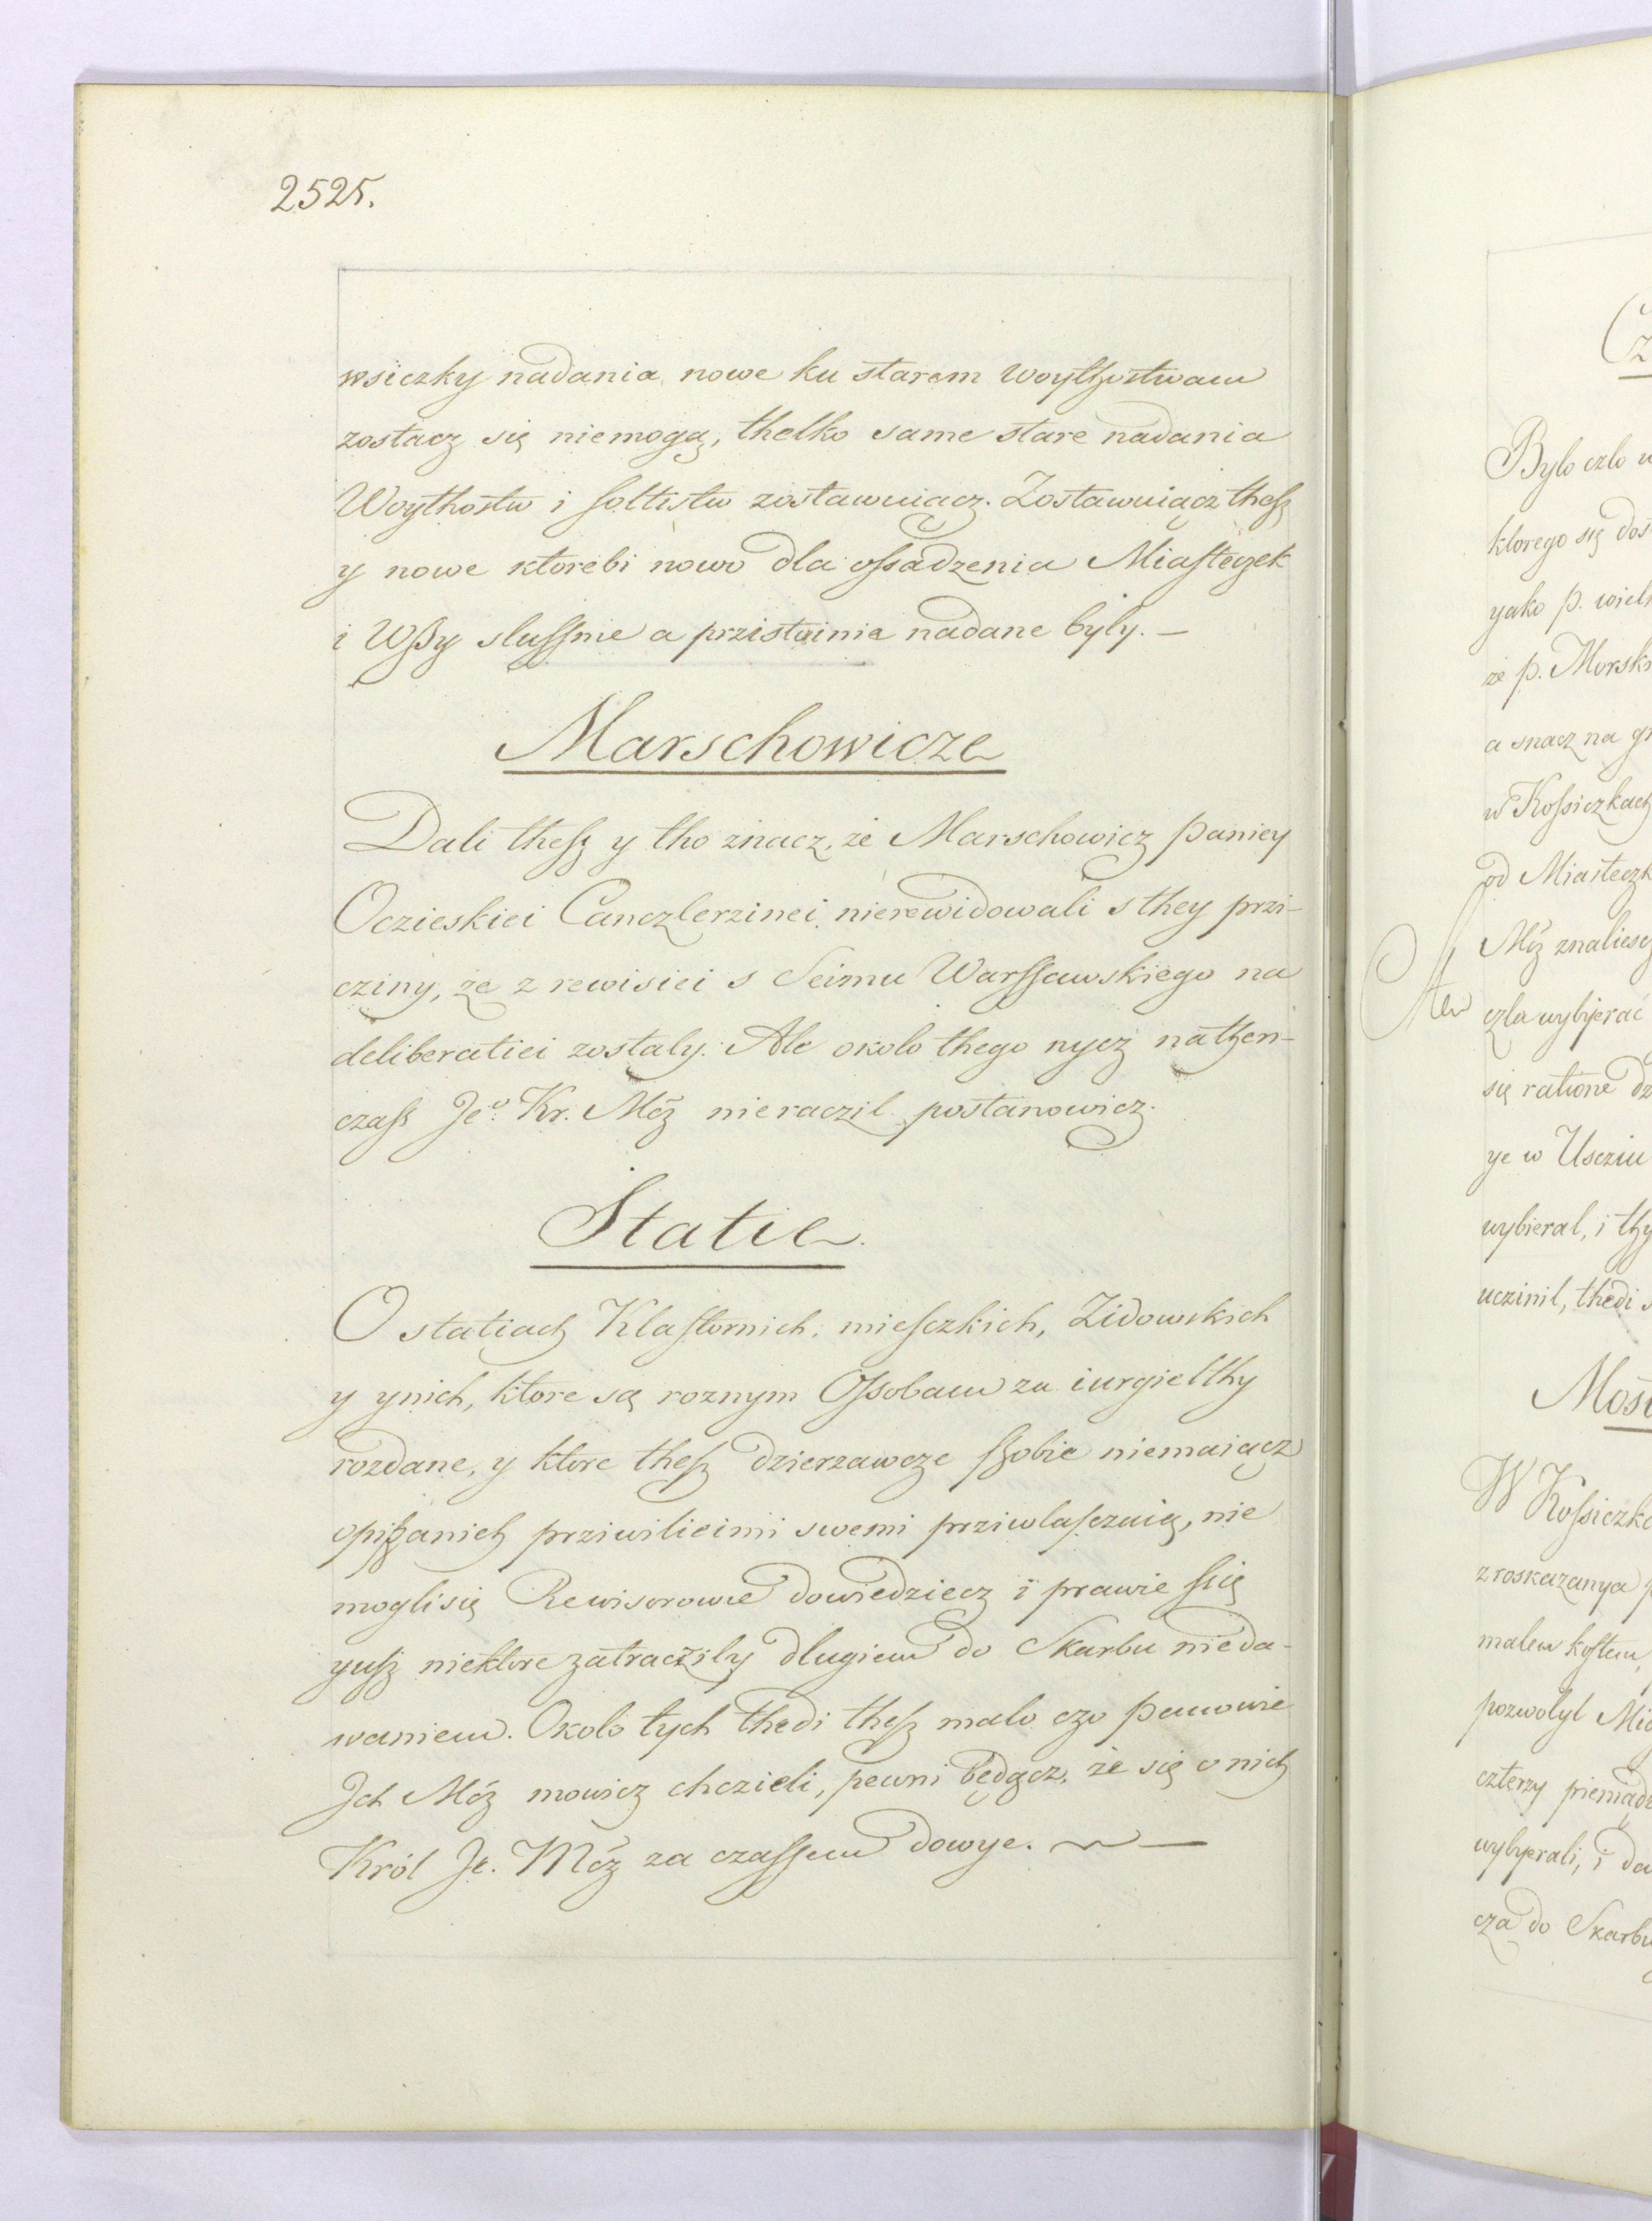 2525.
wsiczky nadania nowe ku starem woythostwam
zostacz się niemogą, thelko same stare nadania
Woythostw i soltistw zostawuiącz. Zostawuiącz thesz
y nowe ktorebi nowo dla ossadzenia Miasteczek
i Wszy slussnie a przistoinie nadane były. —
Marschowicze
Dali thesz y tho znacz, że Marschowicz paniey
Oczieskiei Canczlerzinei nierewidowali s they przi-
cziny, że z rewisiei s Seimu Warssawskiego na
deliberatiei zostaly. Ale okolo thego nycz nathen-
czass Jeº Kr. Mcz nieraczil postanowicz.
Statie.
O statiach Klastornich, miesczkich, Zidowskich
y ynich, ktore są roznym Ossobam za iurgielthy
rozdane, y ktore thesz dzierzawcze szobie niemaiącz
opiszanich przivilieimi swemi prziwlasczaią, nie
mogli się Rewisorowie dowiedziecz i prawie ssię
yusz niektore zatraczily dlugiem do Skarbu nieda-
waniem. Okolo tych thedi thesz malo czo panowie
Ich Mcz mowicz chczieli, pewni będącz, że się o nich
Król Je. Mcz za czassem dowye. —
Cz
Bylo czlo w
ktorego się dos
yako p. wiel
że p. Morski
a snacz na gr
w Kossiczkach
od Miasteczk
Mcz znaliescz
ten czla wybijerać
się ratione dz
ye w Usciu
wybieral, i thy
uczinil, thedi s
Most
W Kossiczka
z roskazanya p
malem kostem,
pozwolyl Mia
czterzy pieniądz
wybyerali, i da
cza do Skarbu